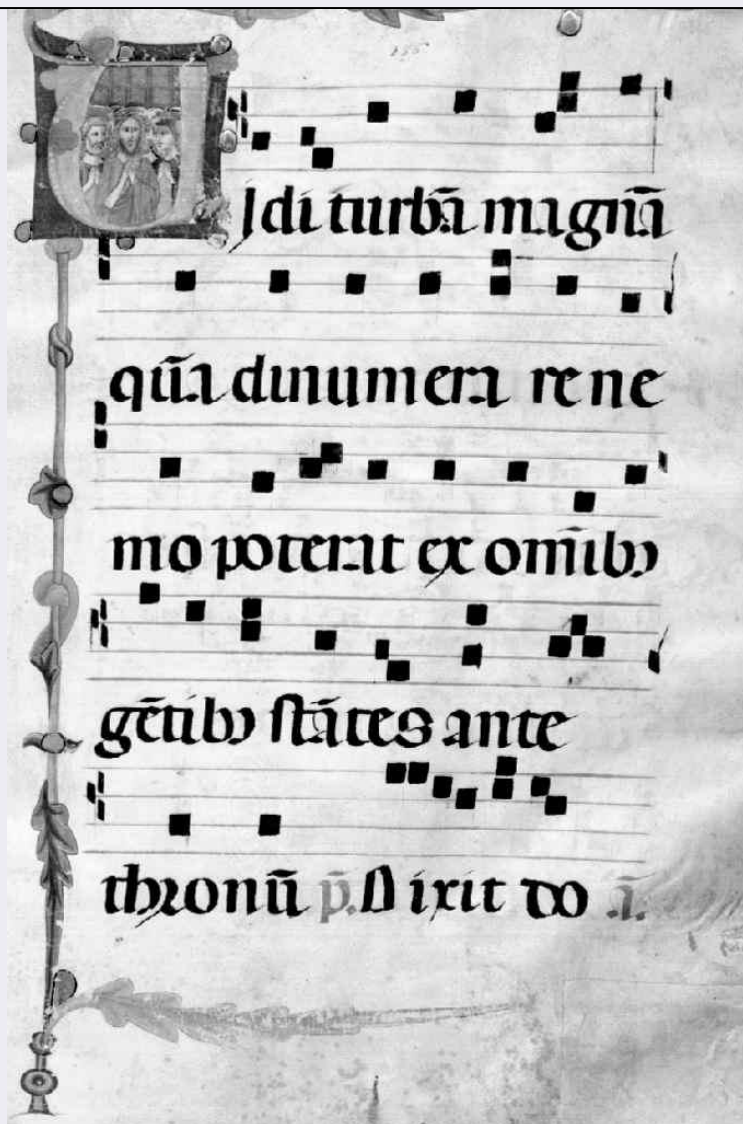 Uidi turbā magnā
quā dinumerare ne
mo poterat ex omībꝫ
gētibꝫ stātes ante
thronū p̄. Dixit do ā.